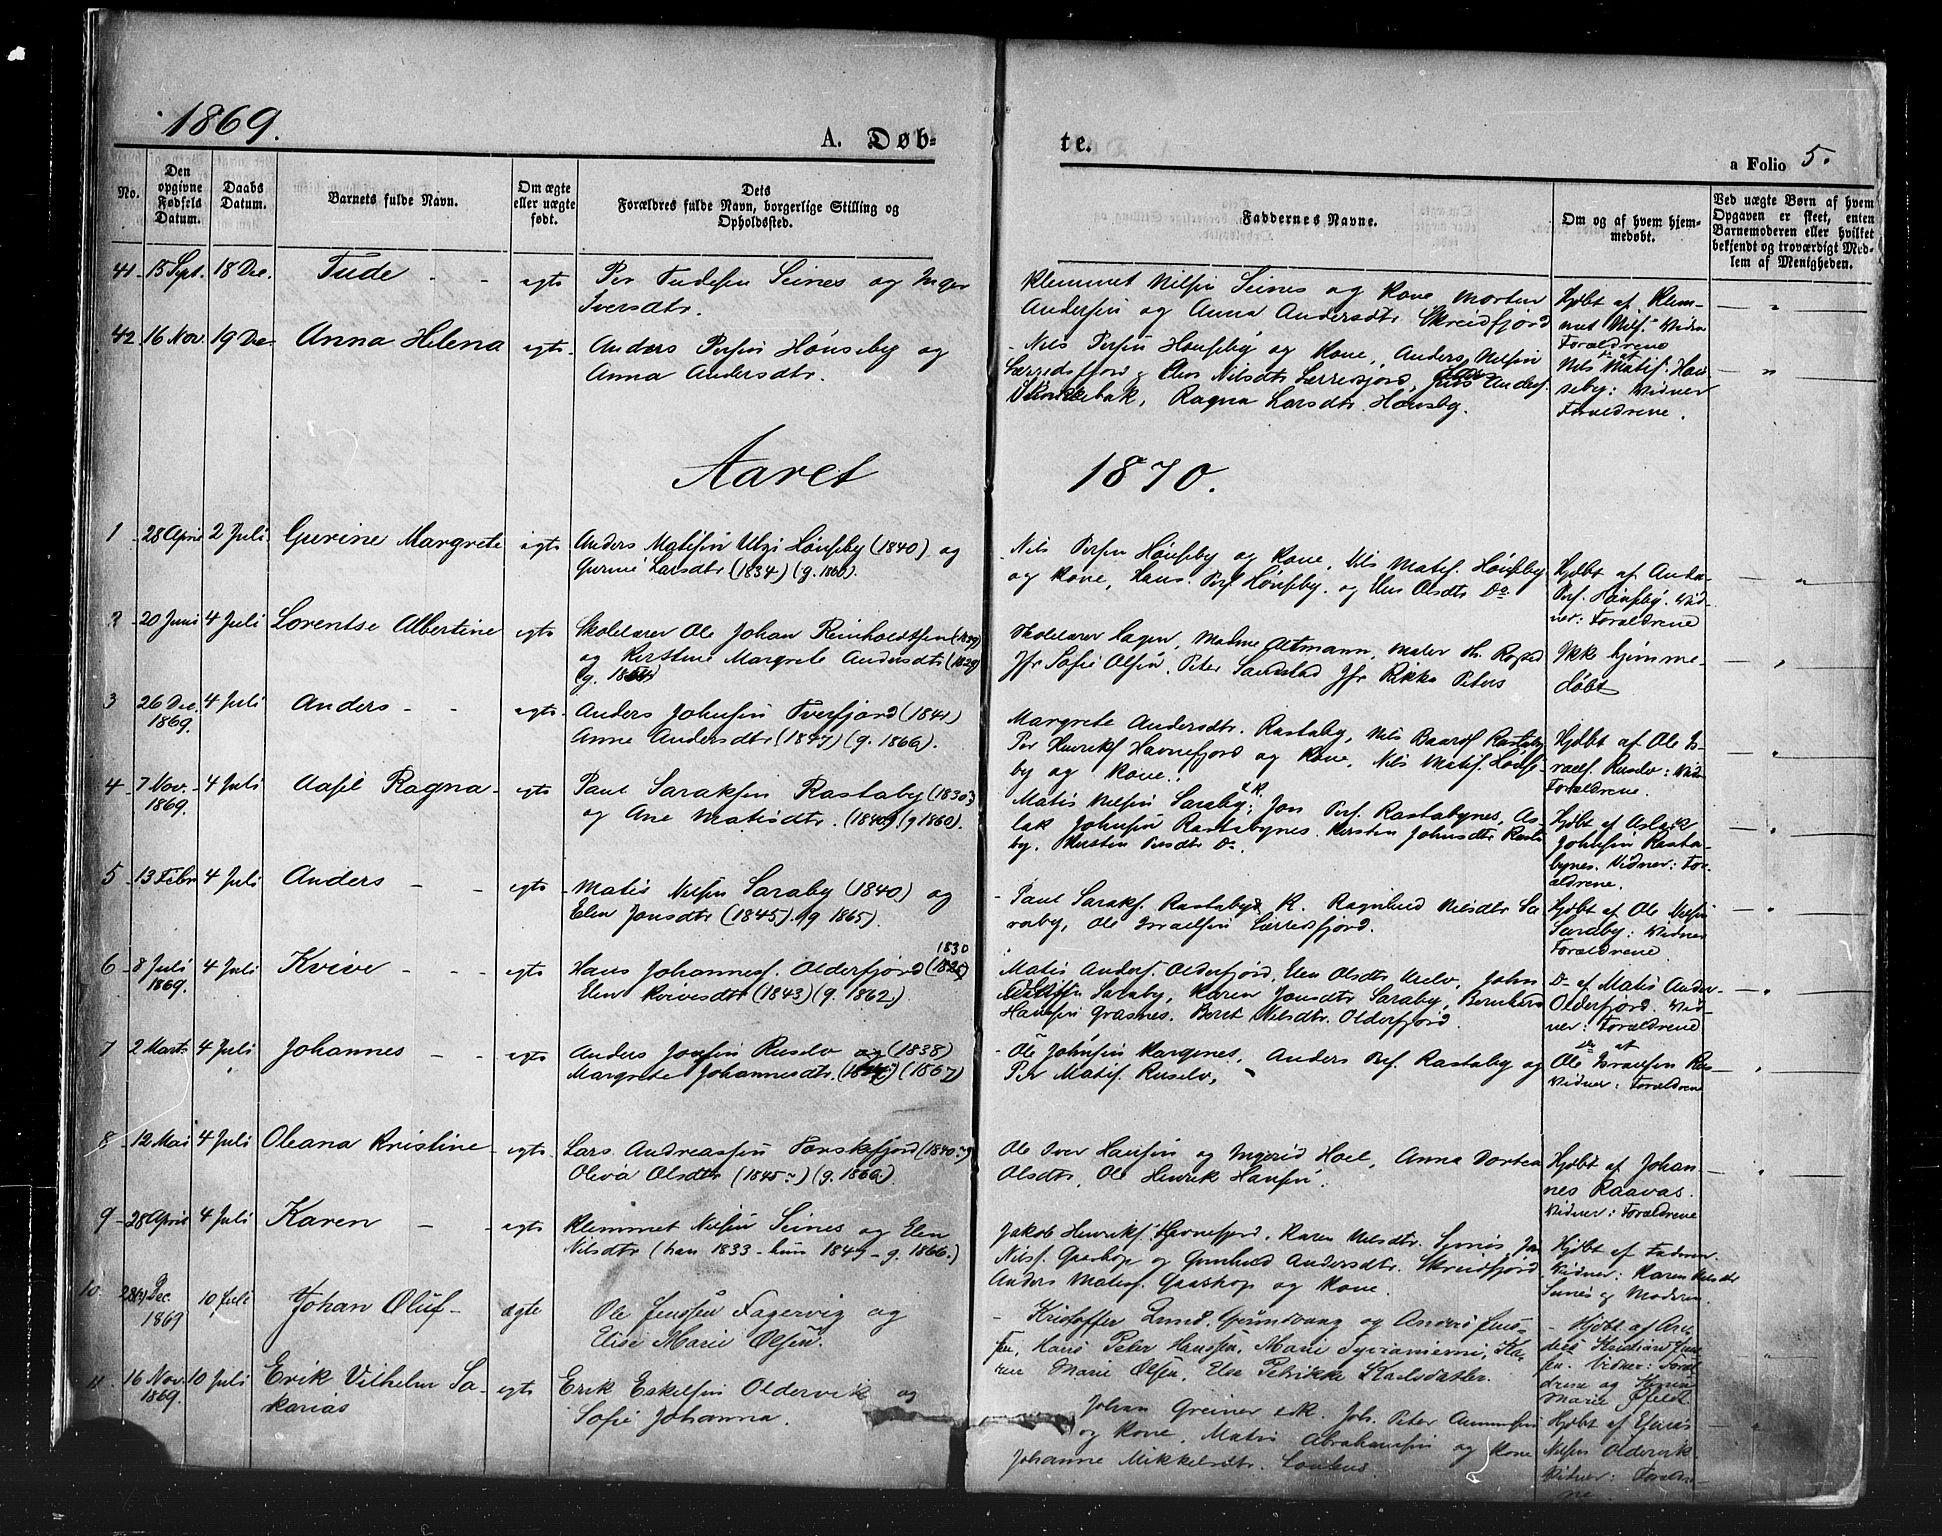 1869.
A. Døb-
te.
a Folio 5.
No.
Den opgivne Fødsels Datum.
Daabs Datum.
Barnets fulde Navn.
Om ægte eller uægte født.
Dets Forældres fulde Navn, borgerlige Stilling og Opholdssted.
Faddernes Navne.
Om og af hvem hjemmedøbt.
Ved uægte Børn af hvem Opgaven er skeet, enten Barnemoderen eller hvilket bekjendt og troværdigt Medlem af Menigheden.
41 15 Sept. 18 Dec. Tude - - egte
Per Tudesen Seines og Inger
Iversdtr.
Klemmet Nilsen Seines og Kone, Morten
Andersen og Anna Andersdtr Skreidfjord
Hjdbt af Klem-
met Nils. Vidn
Forældrene
42 16 Nov. 19 Dec. Anna Helena egte
Anders Persen Hønseby og
Anna Andersdtr.
Nils Persen Hønseby og Kone, Anders Nilsen
Lærredsfjord & Elen Nilsdtr Lærredsfjord, Anders
Ragna Larsdtr. Hønseby.
Do af
Nils Matis. Høn-
seby: Vidner
Forældrene.
Aaret 1870.
1 28 April 2 Juli Gurine Margrete egte
Anders Matisen Utgi Hønseby (1840) og
Gurine Larsdtr. (1834) (g. 1860).
Nils Persen Hønseby og Kone, Nils Matis. Hønseby
og Kone, Hans Pers. Hønseby. og Elen Olsdtr Do
Hjdbt af Anders
Pers. Hønseby. Vid-
ner: Forældrene
2 20 Juni 4 Juli Lorentse Albertine egte
Skolelærer Ole Johan Reinholdtsen (1839)
og Kirstine Margrete Andersdtr (1829)
Skolelærer Hagen, Madme Altmann, Maler Th. Rogsed
Jfr Sofie Olsen, Peter Sandstad Jfr Rikka Peters
Ikke hjemme-
døbt
3 26 Dec. 1869. 4 Juli Anders - - egte
Anders Johnsen Tverfjord (1841)
Anne Andersdtr (1847) (g. 1866).
Margrete Andersdtr. Rastaby, Nils Baards. Rastaby
Per Henriks. Havnefjord og Kone, Nils Matis. Hønse-
by og Kone.
Hjdbt af Ole Is-
raels. Ruselv: Vidn
Forældrene.
4 7 Nov. 1869. 4 Juli Aasil Ragna egte
Paul Saraksen Rastaby (1830)
og Ane Matisdtr. (1840) (g 1860).
Matis Nilsen Saraby, &K. Jon Pers. Rastabynes, As-
lak Johnsen Rastabynes. Kirsten Johnsdtr Rasta-
by. Kirsten Persdtr Do
Hjdbt af Aslak
Johnsen Rasta-
bynes. Vidner: For-
ældrene.
5 13 Febr 4 Juli Anders - - egte
Matis Nilsen Saraby (1840) og
Elen Jonsdtr (1845). (g 1865).
Paul Saraks. Rastaby & K. Ragnhild Nilsdtr Sa-
raby, Ole Israelsen Lærredsfjord.
Hjdbt af Ole Nilsen
Saraby: Vidner
Forældrene
6 8 Juli 1869. 4 Juli Kvive - - egte
Hans Johannes. Olderfjord 1830
Elen Kvivesdtr (1843) (g. 1862.)
Matis Anders. Olderfjord, Elen Olsdtr Ruselv, John
Saraby, Karen Jonsdtr Saraby, Bernhard
Hansen Græsnes, Beret Nilsdtr. Olderfjord.
Do af Matis Anders-
Olderfjord. Vid-
ner: Forældrene
7 2 Marts 4 Juli Johannes - - egte
Anders Jonsen Ruselv og (1838)
Margrete Johannesdtr. (1867)
Ole Johnsen Kargenes, Anders Pers. Rastaby og
Per Matis. Ruselv,
Do af
Ole Israelsen Rus-
Vidner: Forældrene
8 12 Mai 4 Juli Oleana Kristine egte
Lars Andreassen Torskefjord (1840)
Oliva Olsdtr (1845) (g. 1866)
Ole Iver Hansen og Ingerid Hoel, Anna Dortea
Olsdtr, Ole Henrik Hansen.
Hjdbt af Johan-
nes Raavas.
Vidner: Forældrene
9 28 April 4 Juli Karen - - egte
Klemmet Nilsen Seines og Elen
Nilsdtr (han 1833 - hun 1849 - g. 1866.)
Jakob Henriks. Havnefjord, Karen Nilsdtr. Seines, Jon
Nils. Gaashop og Gunhild Andersdtr. Skreidfjord
Anders Matis. Gaashop og Kone.
Hjdbt af Faderen.
Vidner: Karen Nilsdtr
Seines og Moderen.
10 28 Dec 1869 10 Juli Johan Oluf ægte
Ole Jenssen Fagervig og
Elise Marie Olsen.
Kristoffer Lund, Grundvaag og Anders Jens-
sen, Hans Peter Hanssen, Marie Ka-
ren Marie Olsen, Elen Petrikke Karlsdatter.
Hjdbt af An-
ders Kristian Jens-
sen. Vidner: Foræl-
drene og
Marie
11 16 Nov. 1869. 10 Juli Erik Vilhelm Sa-
karias egte
Erik Eskelsen Oldervik og
Sofie Johanna.
Johan Greiner & K. Joh. Peter
og Kone, Matis Abrahamsen og Kone
Johanne Mikkelsdtr.
Hjdbt af
Nilsen Oldervik
Vidner: Forældre-
ne.